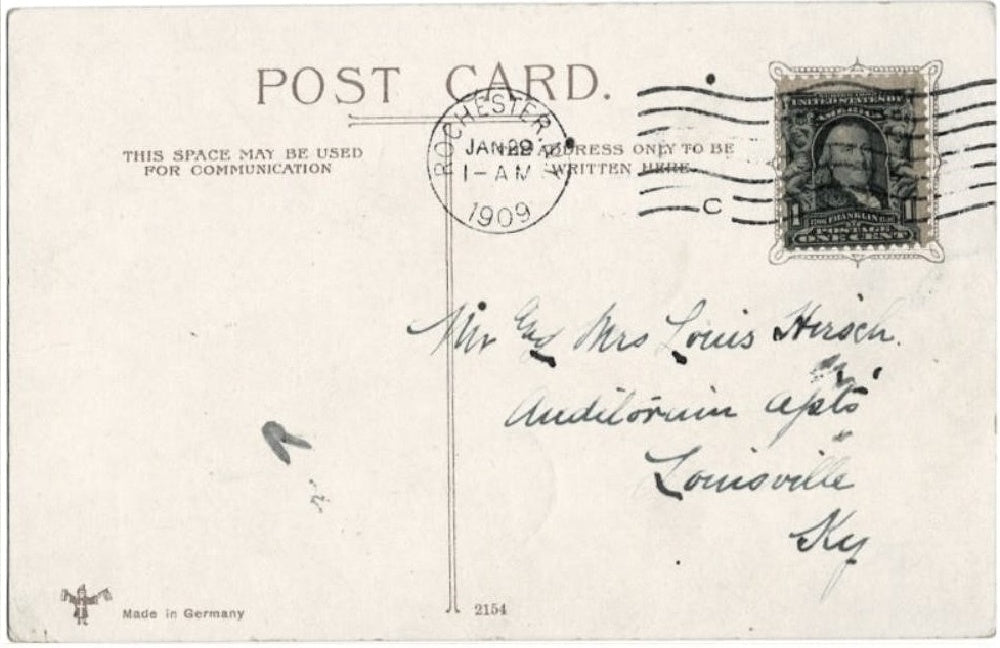 POST CARD.
THIS SPACE MAY BE USED
FOR COMMUNICATION
THE ADDRESS ONLY TO BE
WRITTEN HERE
ROCHESTER, N.Y.
JAN 29
1-AM
1909
C
UNITED STATES OF
AMERICA
1 FRANKLIN 1
POSTAGE
ONE CENT
Mr and Mrs Louis Hirsch.
Auditorium Apts
Louisville
Ky
Made in Germany
2154